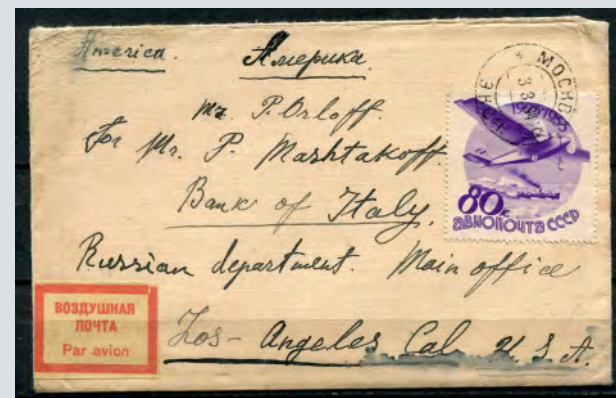 America. Америка.
Mr. P. Orloff.
For Mr. P. Mashtakoff.
Bank of Italy,
Russian department. Main office
Los-Angeles Cal U.S.A.
МОСК
80 к.
АВИОПОЧТА СССР
ВОЗДУШНАЯ
ПОЧТА
Par avion